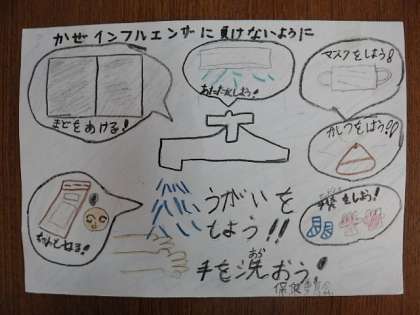 かぜインフルエンザに負けないように
まどをあける!
あたたかくしよう!
マスクをしよう!
かしつをしよう!!
手袋をしよう!
ちゃんとねる!
うがいを
しよう!!
手を洗おう!
あら
保健委員会